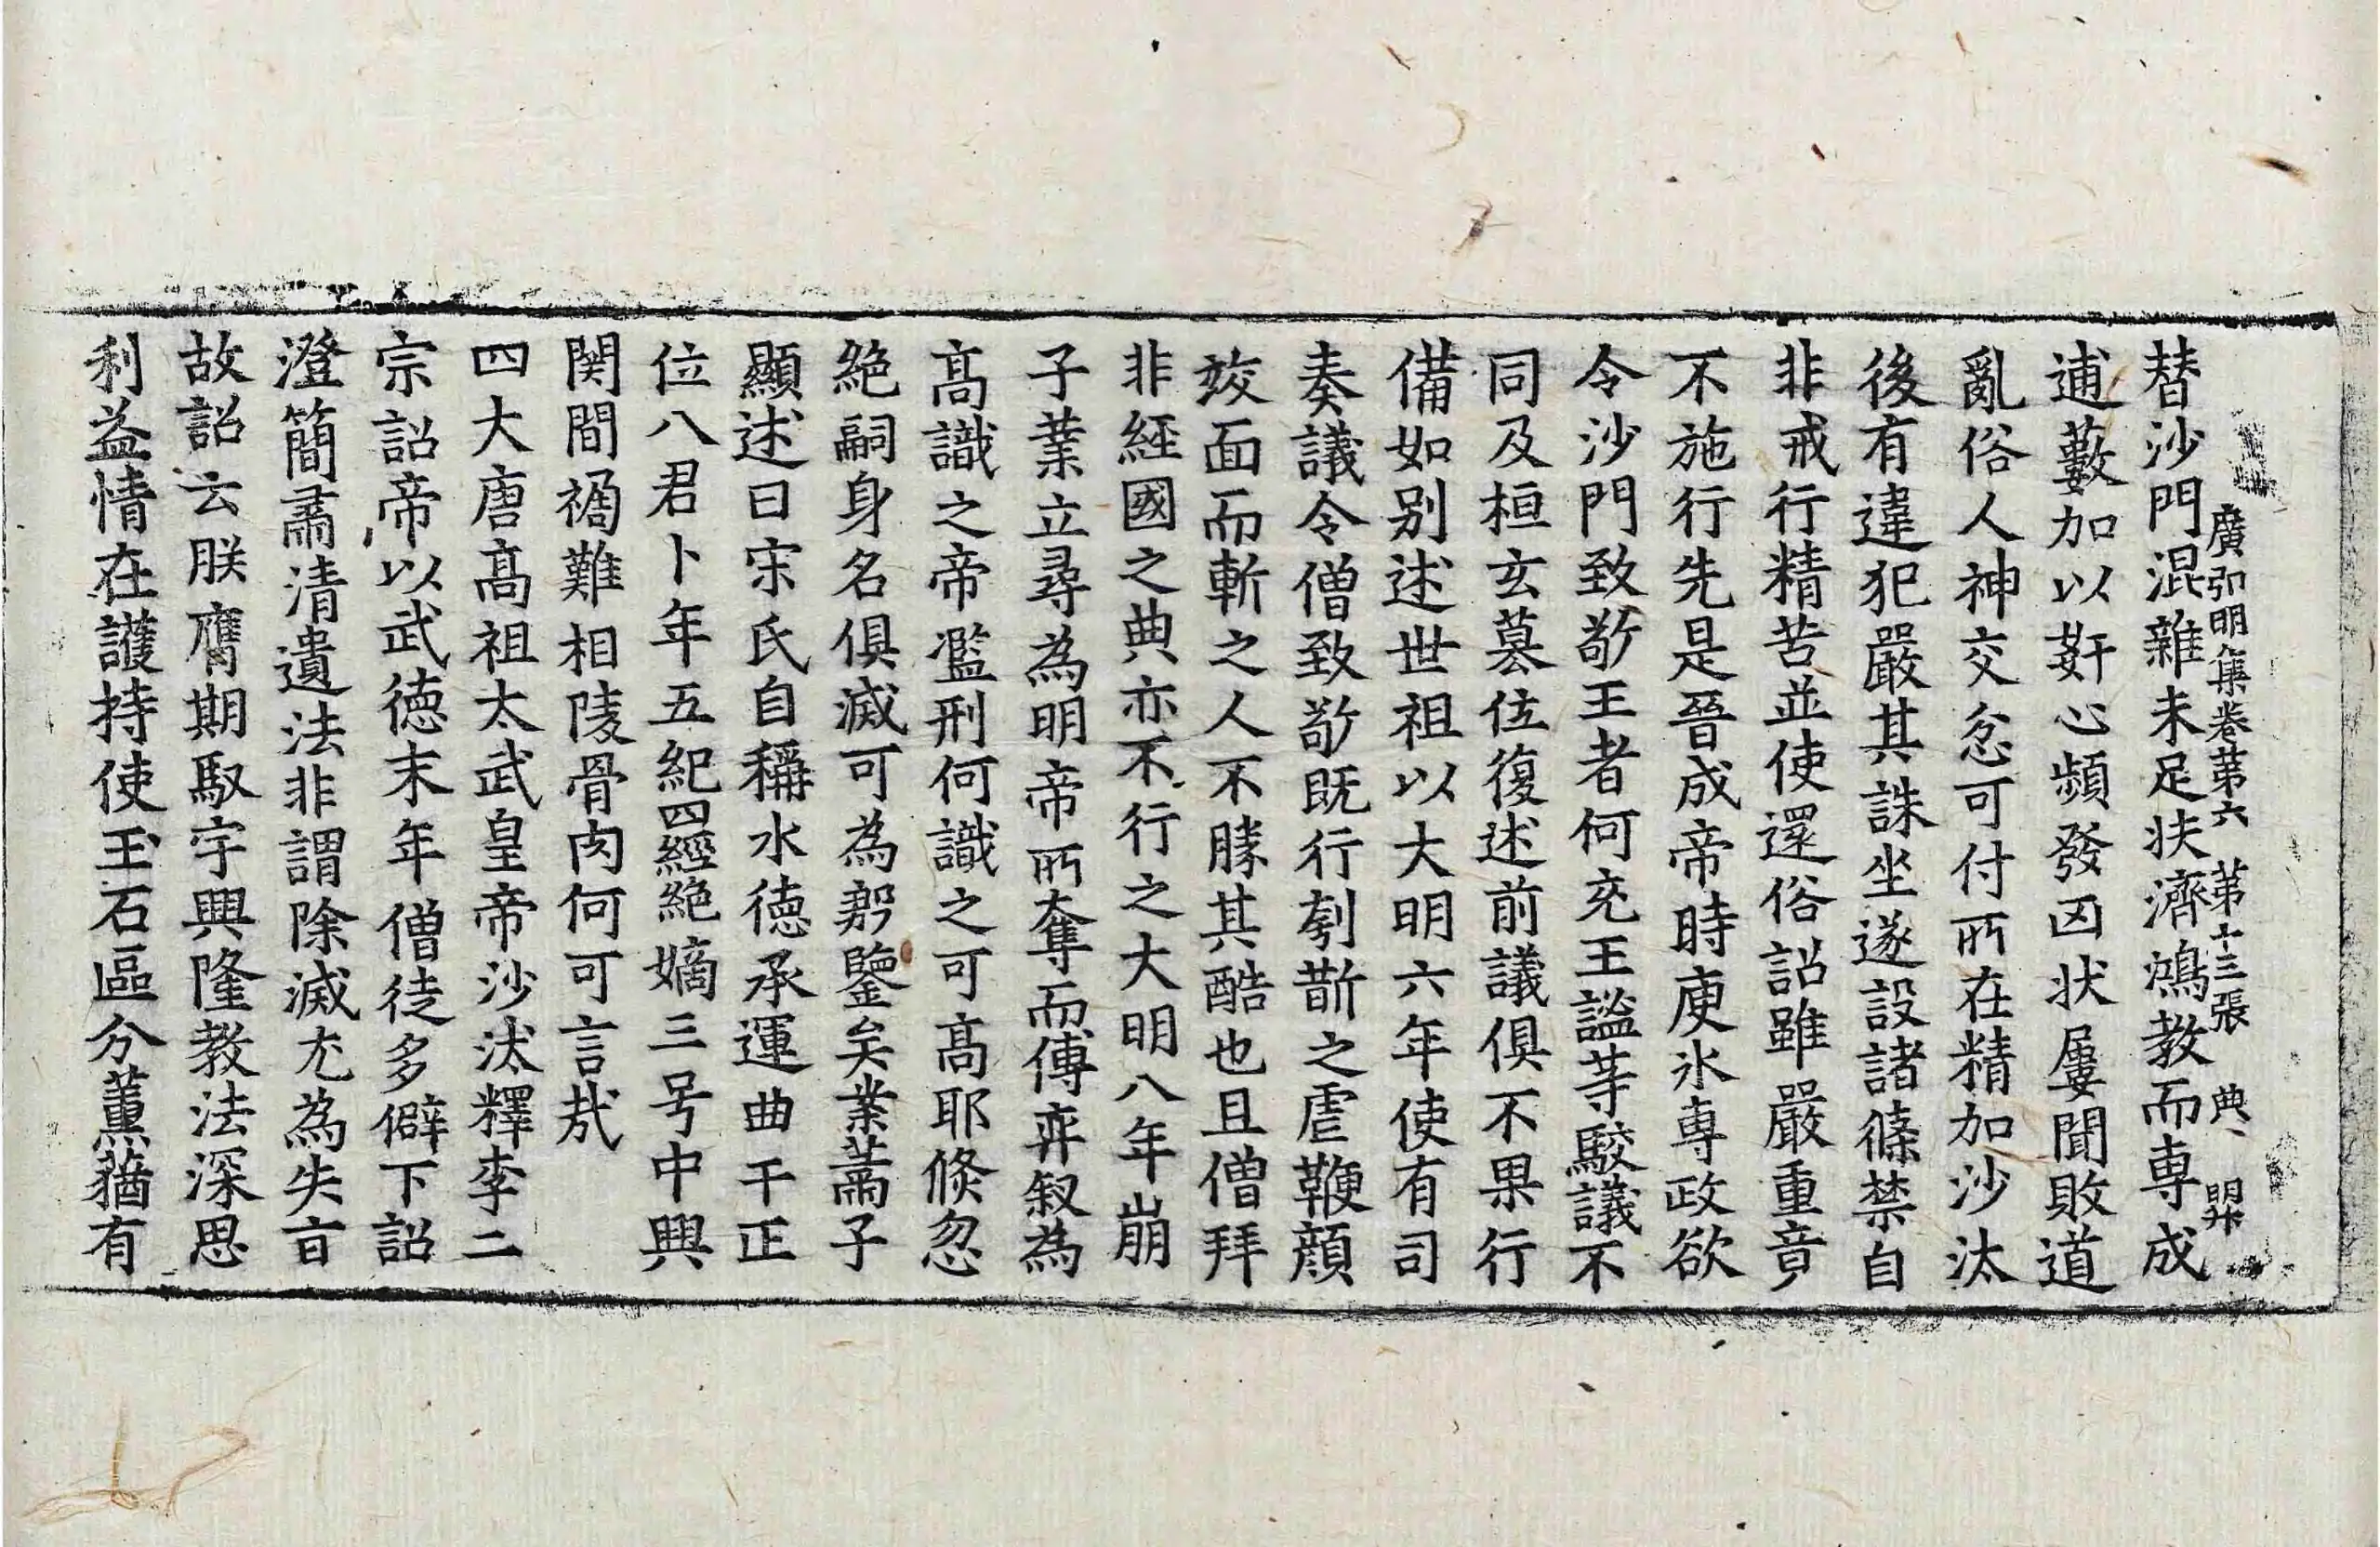 廣弘明集卷第六 第十三張 典
替沙門混雜未足扶濟鴻教而專成
逋藪加以姧心頻發凶状屢聞敗道
亂俗人神交忿可付所在精加沙汰
後有違犯嚴其誅坐遂設諸條禁自
非戒行精苦並使還俗詔雖嚴重竟
不施行先是晉成帝時庾氷專政欲
令沙門致敬王者何充王謐等駮議不
同及桓玄篡位復述前議俱不果行
備如別述世祖以大明六年使有司
奏議令僧致敬既行刳斮之虐鞭顔
竣面而斬之人不勝其酷也且僧拜
非經國之典亦不行之大明八年崩
子業立尋為明帝所奪而傅弈叙為
髙識之帝濫刑何識之可髙耶倐忽
絶嗣身名俱滅可為殷鑒矣業蕭子
顯述曰宋氏自稱水徳承運曲干正
位八君卜年五紀四經絶嫡三号中興
関間禍難相陵骨肉何可言哉
四大唐髙祖太武皇帝沙汰釋李二
宗詔帝以武徳末年僧徒多僻下詔
澄簡肅清遺法非謂除滅尤為失㫖
故詔云朕膺期馭宇興隆教法深思
利益情在護持使玉石區分薫蕕有